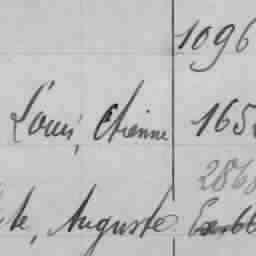 1096
Louis, Etienne 165
286
te, Auguste Ex.